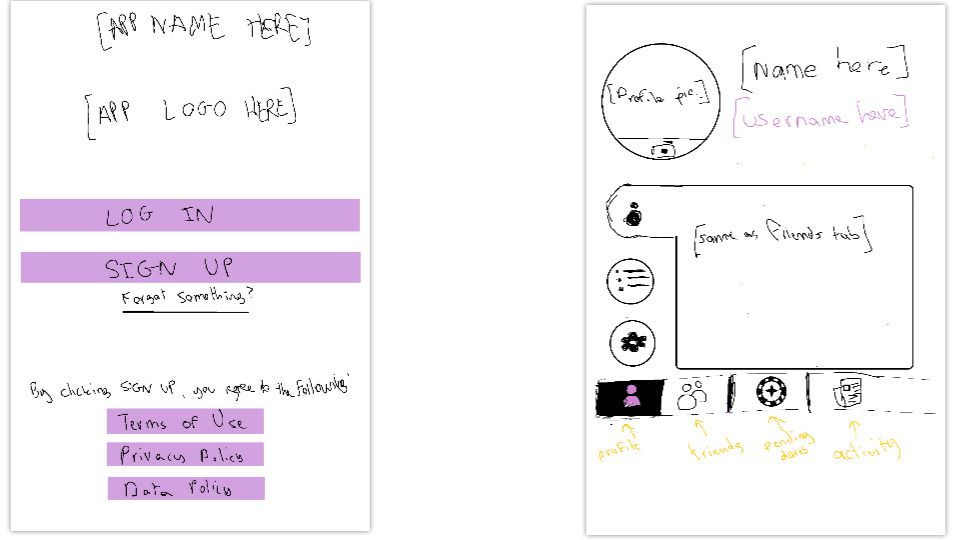 [APP NAME HERE]
[APP LOGO HERE]
LOG IN
SIGN UP
Forgot Something?
By clicking SIGN UP, you agree to the following:
Terms of Use
Privacy Policy
Data Policy
[Profile pic.]
[Name here]
[username here]
[same as friends tab]
profile
friends
pending dares
activity